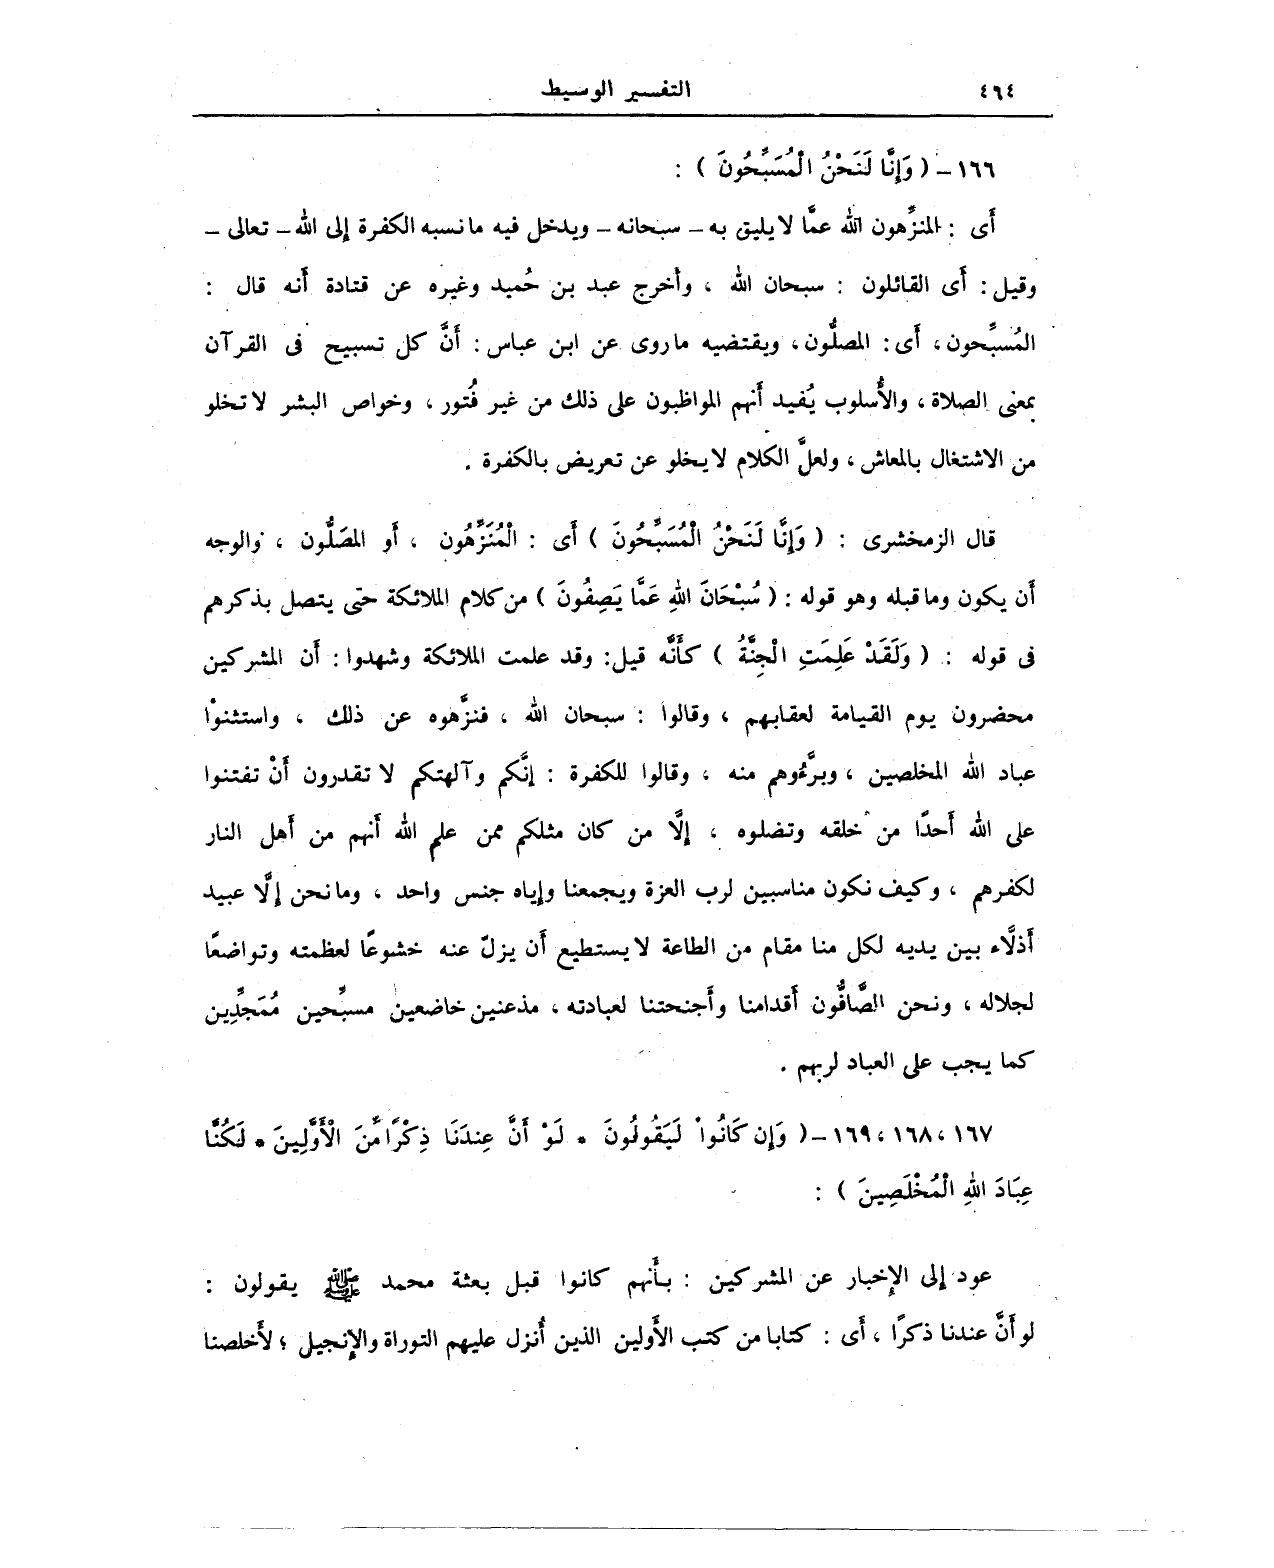 ٤٦٤
التفسير الوسيط
١٦٦ – ( وَإِنَّا لَنَحْنُ الْمُسَبِّحُونَ ) :
أَى : المنزِّهون الله عمَّا لا يليق به – سبحانه – ويدخل فيه ما نسبه الكفرة إلى الله – تعالى –
وقيل : أَى القائلون : سبحان الله ، وأخرج عبد بن حُميد وغيره عن قتادة أنه قال :
المُسبِّحون ، أَى : المصلُّون ، ويقتضيه ما روى عن ابن عباس : أَنَّ كل تسبيح فى القرآن
بمعنى الصلاة ، والأُسلوب يُفيد أَنهم المواظبون على ذلك من غير فُتور ، وخواص البشر لا تخلو
من الاشتغال بالمعاش ، ولعلَّ الكلام لا يخلو عن تعريض بالكفرة .
قال الزمخشرى : ( وَإِنَّا لَنَحْنُ الْمُسَبِّحُونَ ) أَى : الْمُنَزِّهُون ، أَو المصَلُّون ، والوجه
أَن يكون وما قبله وهو قوله : ( سُبْحَانَ اللهِ عَمَّا يَصِفُونَ ) من كلام الملائكة حتى يتصل بذكرهم
فى قوله : ( وَلَقَدْ عَلِمَتِ الْجِنَّةُ ) كأَنَّه قيل : وقد علمت الملائكة وشهدوا : أَن المشركين
محضرون يوم القيامة لعقابهم ، وقالوا : سبحان الله ، فنزَّهوه عن ذلك ، واستثنوْا
عباد الله المخلصين ، وبرَّءُوهم منه ، وقالوا للكفرة : إِنَّكم وآلهتكم لا تقدرون أَنْ تفتنوا
على الله أَحدًا من خلقه وتضلوه ، إِلَّا من كان مثلكم ممن علم الله أَنهم من أَهل النار
لكفرهم ، وكيف نكون مناسبين لرب العزة ويجمعنا وإِياه جنس واحد ، وما نحن إِلَّا عبيد
أَذلَّاء بين يديه لكل منا مقام من الطاعة لا يستطيع أَن يزلّ عنه خشوعًا لعظمته وتواضعًا
لجلاله ، ونحن الصَّافُّون أَقدامنا وأَجنحتنا لعبادته ، مذعنين خاضعين مسبِّحين مُمَجِّدِين
كما يجب على العباد لربهم .
١٦٧ ، ١٦٨ ، ١٦٩ – ( وَإِن كَانُوا لَيَقُولُونَ * لَوْ أَنَّ عِندَنَا ذِكْرًا مِّنَ الْأَوَّلِينَ * لَكُنَّا
عِبَادَ اللهِ الْمُخْلَصِينَ ) :
عود إلى الإِخبار عن المشركين : بأَنهم كانوا قبل بعثة محمد ﷺ يقولون :
لو أَنَّ عندنا ذكرًا ، أَى : كتابا من كتب الأَولين الذين أُنزل عليهم التوراة والإِنجيل ؛ لأَخلصنا